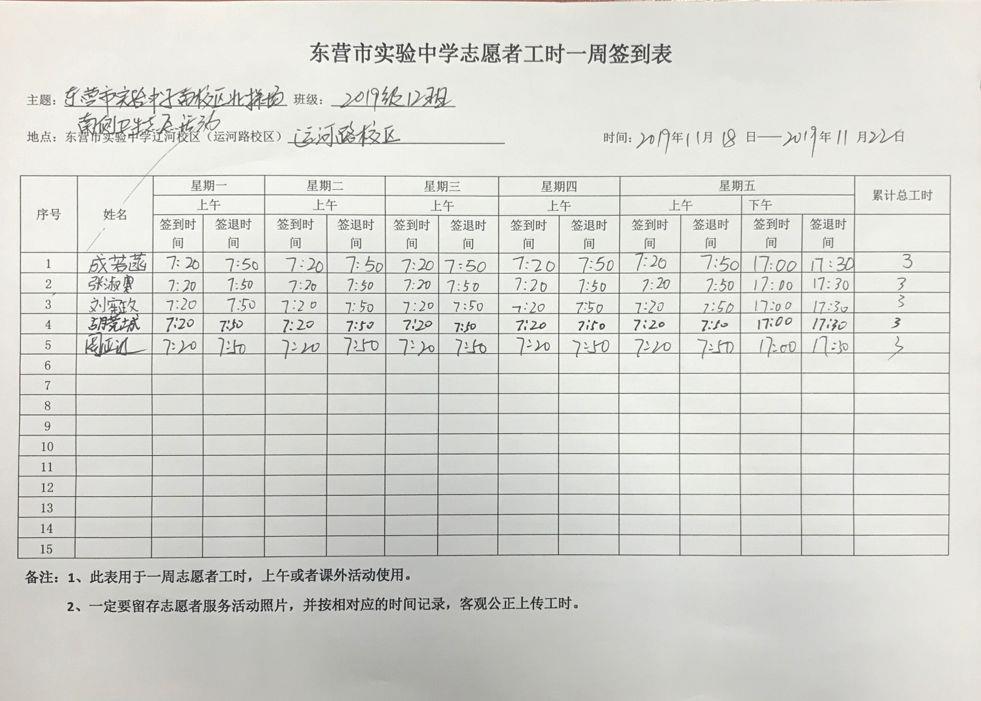 东营市实验中学志愿者工时一周签到表
主题：东营市实验中学南校区北操场 班级：2019级12班
南侧卫生志愿活动
地点：东营市实验中学辽河校区（运河路校区）运河路校区 时间：2019年11月18日——2019年11月22日
序号 姓名 星期一 星期二 星期三 星期四 星期五 累计总工时
上午 上午 上午 上午 上午 下午
签到时间 签退时间 签到时间 签退时间 签到时间 签退时间 签到时间 签退时间 签到时间 签退时间 签到时间 签退时间
1 成若菡 7:20 7:50 7:20 7:50 7:20 7:50 7:20 7:50 7:20 7:50 17:00 17:30 3
2 张淑 7:20 7:50 7:20 7:50 7:20 7:50 7:20 7:50 7:20 7:50 17:00 17:30 3
3 刘 7:20 7:50 7:20 7:50 7:20 7:50 7:20 7:50 7:20 7:50 17:00 17:30 3
4 7:20 7:50 7:20 7:50 7:20 7:50 7:20 7:50 7:20 7:50 17:00 17:30 3
5 周 7:20 7:50 7:20 7:50 7:20 7:50 7:20 7:50 7:20 7:50 17:00 17:30 3
6
7
8
9
10
11
12
13
14
15
备注：1、此表用于一周志愿者工时，上午或者课外活动使用。
2、一定要留存志愿者服务活动照片，并按相对应的时间记录，客观公正上传工时。